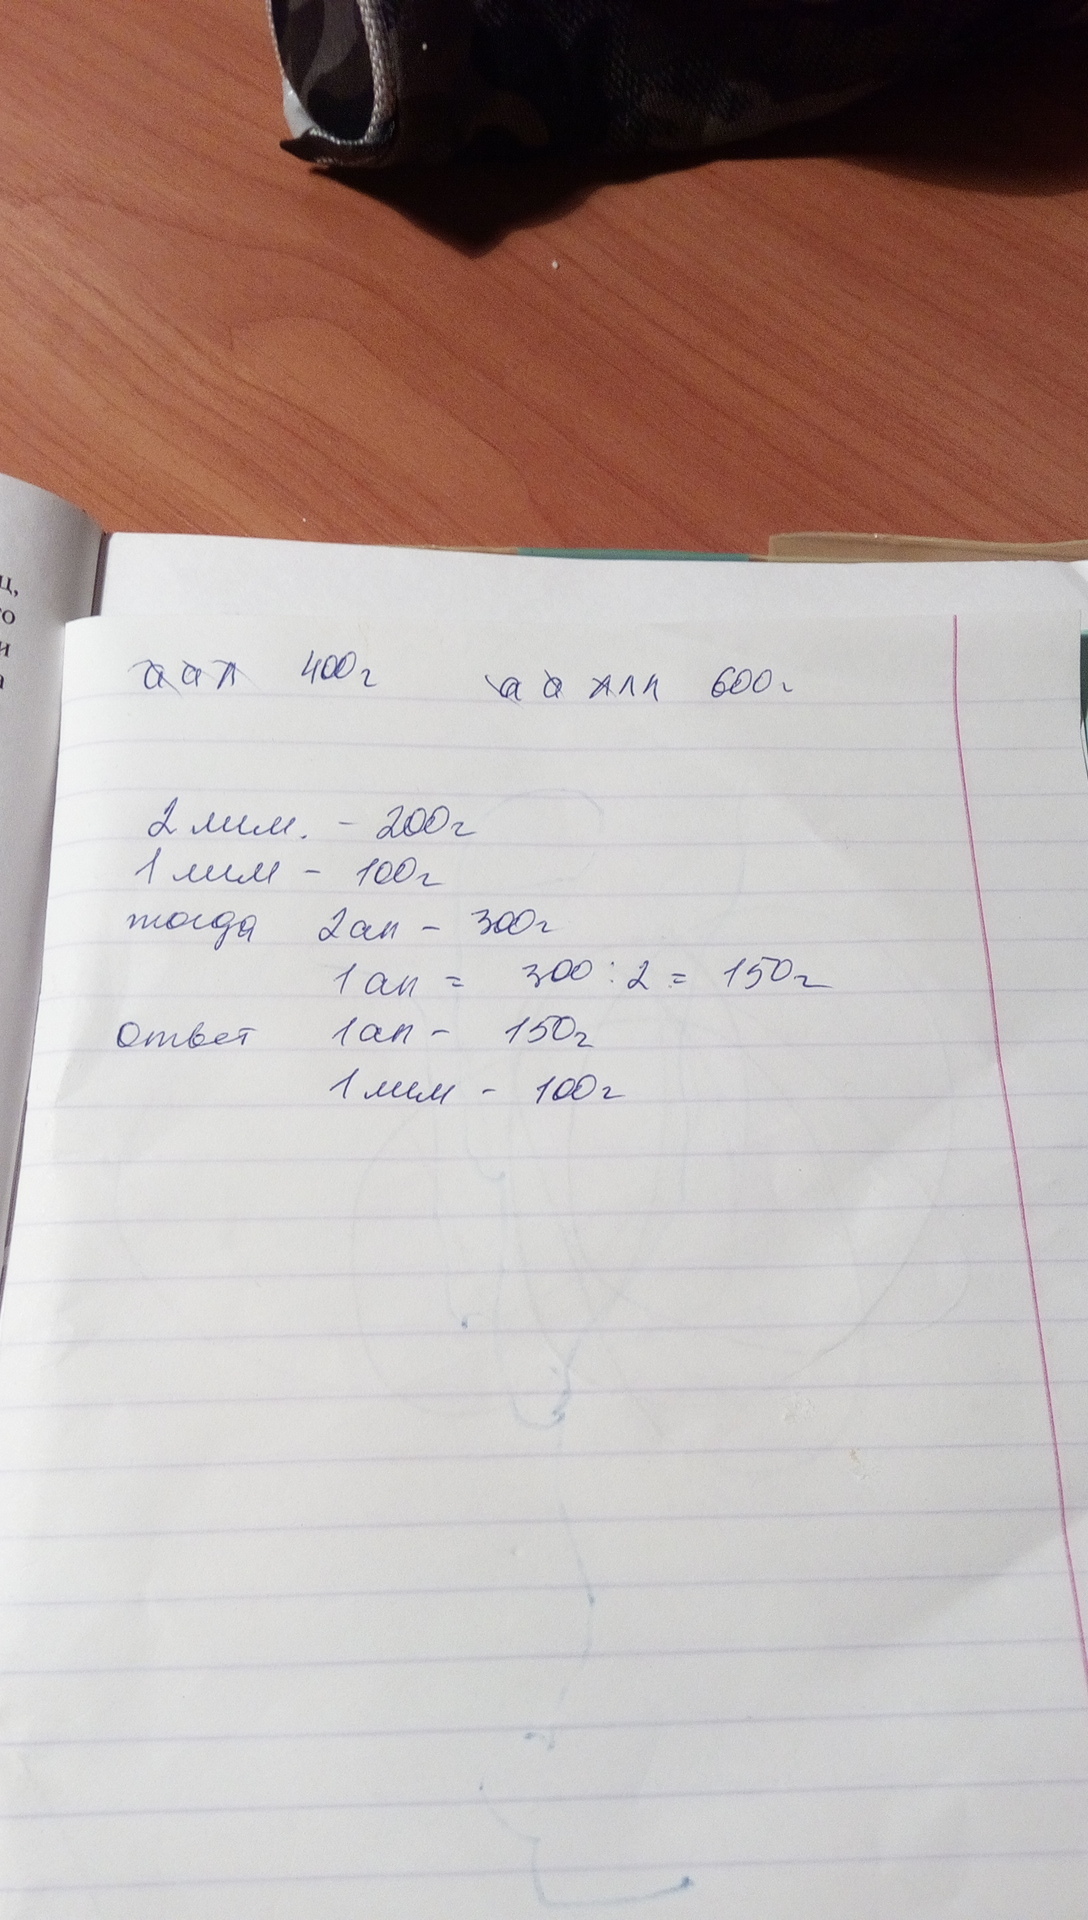 ц,
то
и
а
а а л 400г а а л л л 600г
2 лим. - 200г
1 лим - 100г
тогда 2 ап - 300г
1 ап = 300 : 2 = 150г
ответ 1 ап - 150г
1 лим - 100г